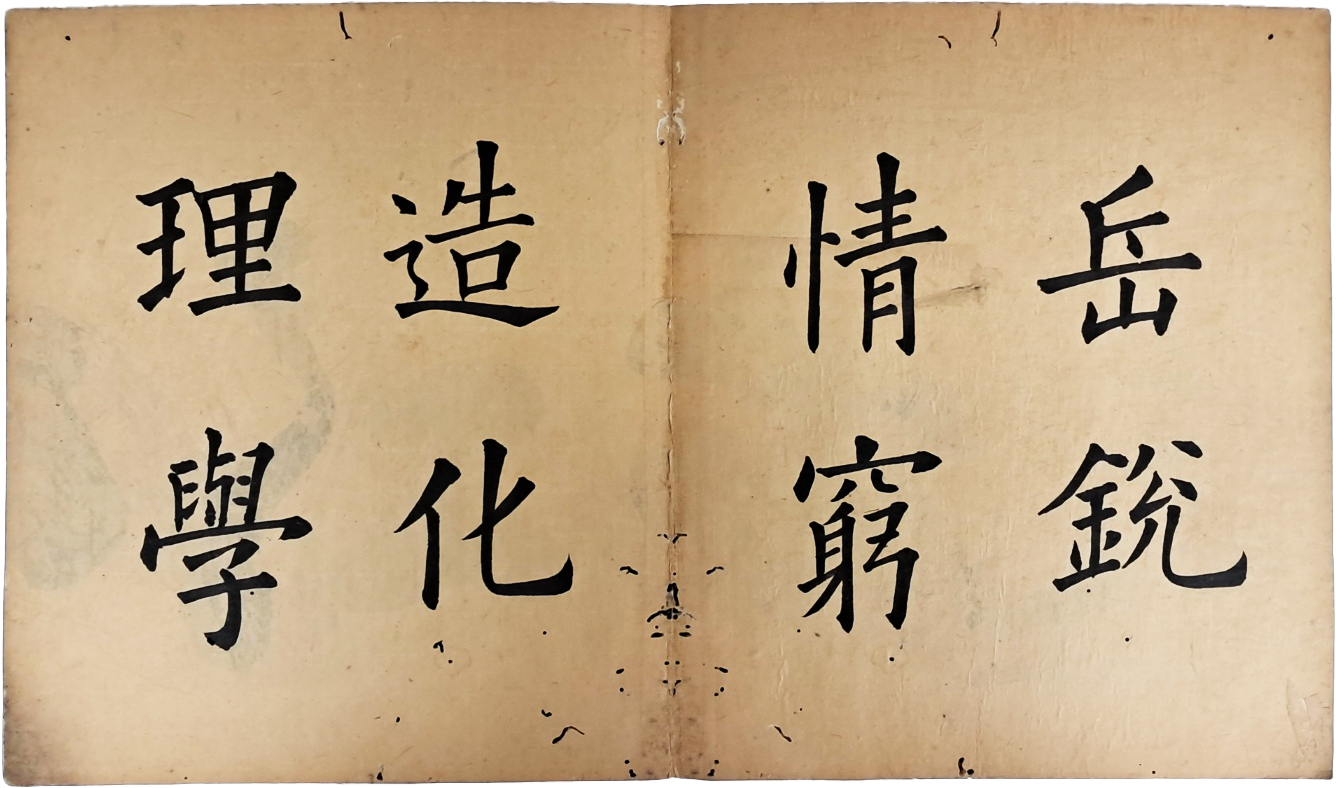 岳鋭
情窮
造化
理學